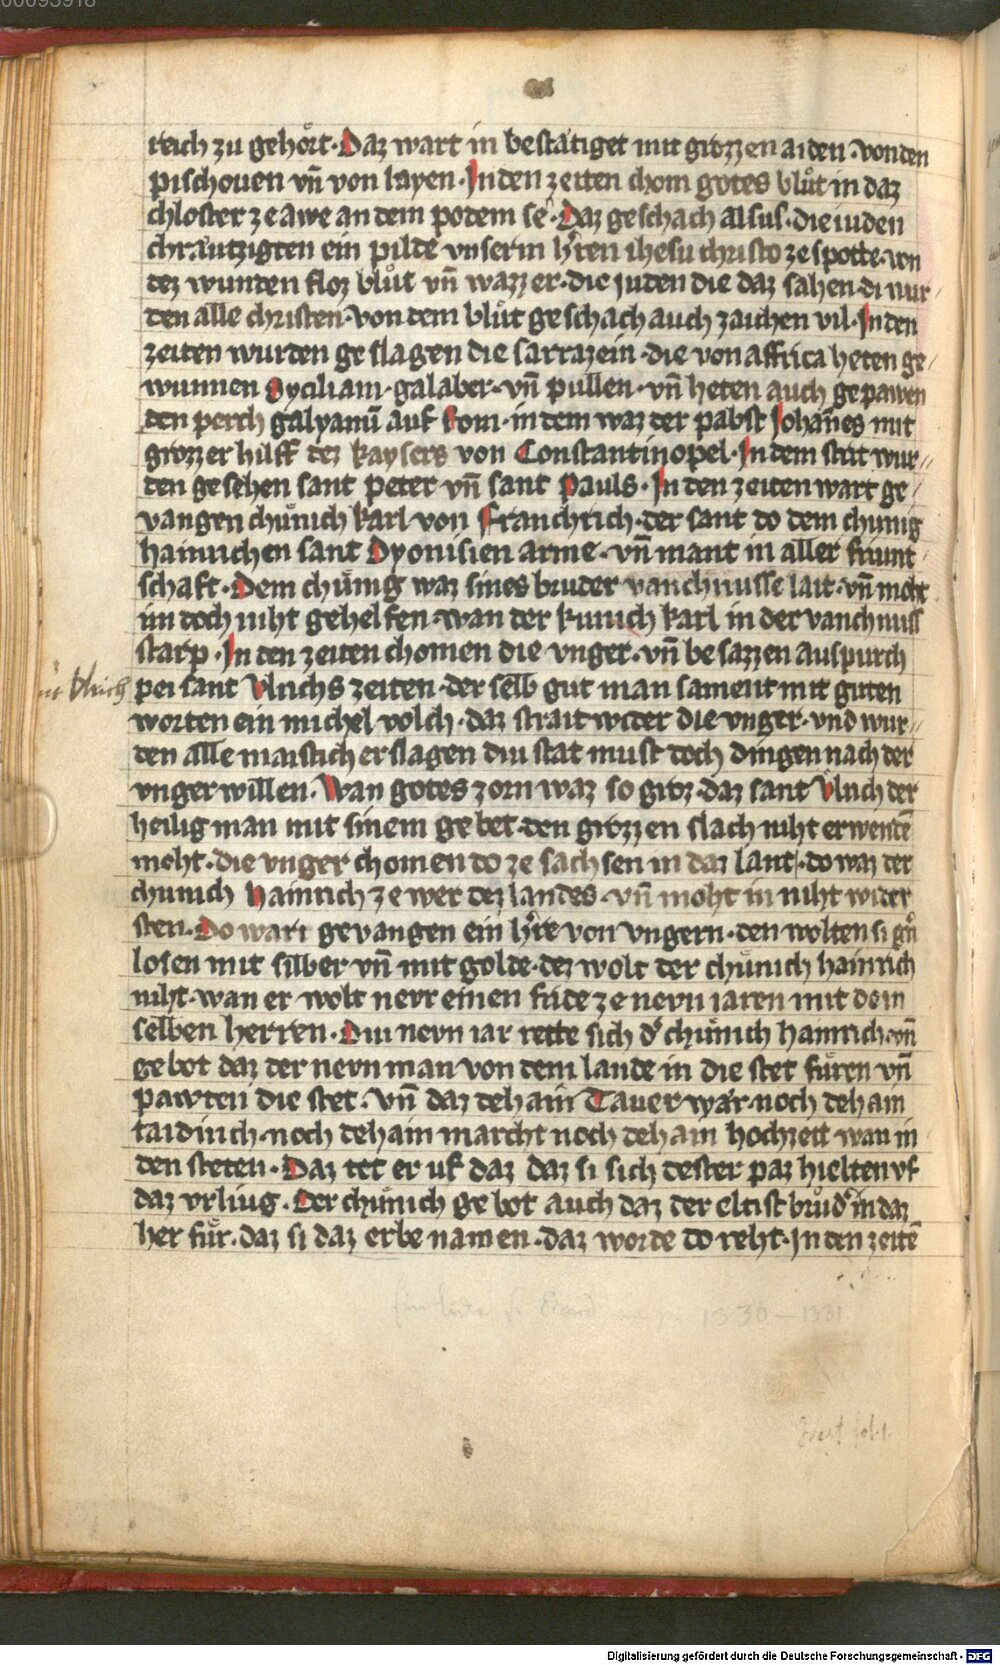 00093918
reich zu gehoͤrt · Daz wart in bestaͤtiget mit grozzen aiden · von den
pischouen vn̄ von layen · In den zeiten chom gotes bluͦt in daz
chloster ze awe an dem podem se · Daz geschach alsus · die iuden
chraͤutzigten ein pilde vnserm hˀren ihesu christo ze spotte · von
dez wunden floz bluͦt vn̄ wazzer · die juden die daz sahen · di wur-
den alle christen · von dem bluͦt geschach auch zaichen vil · In den
zeiten wurden geslagen die sarrazein · die von affrica heten ge/
wunnen Cyciliam · galaber · vn̄ pullen · vn̄ heten auch gepawen
den perch galyanū auf Rom · in dem waz der pabst Johañes mit
grozzer hilff dez kaysers von Constantinopel · In dem strit wur//
den gesehen sant peter vn̄ sant Pauls · In den zeiten wart ge/
vangen chuͤnich karl von Franchrich · der sant do dem chunig
hainrichen sant Dyonisien arme · vn̄ mant in aller friunt
schaft · Dem chuͤnig waz sines bruder vanchnusse lait · vn̄ moht
im doch niht gehelfen · wan der kunich karl in der vanchnuss
starp · In den zeiten chomen die vnger · vn̄ besazzen auspurch
pei sant Vlrichs zeiten · der selb gut man sament mit guten
Vlrich
worten ein michel volch · daz strait wider die vnger · vnd wur//
den alle maistich erslagen diu stat must doch dingen nach der
vnger willen · Wan gotes zorn waz so groz · daz sant Vlrich der
heilig man mit sinem gebet · den grozzen slach niht erwendē
moht · die vnger chomen do ze sachsen in daz lant · do waz der
chunich Hainrich ze wer dez landes · vn̄ moht in niht wider
sten · Do wart gevangen ein hˀre von vngern · den wolten si gˀn
losen mit silber vn̄ mit golde · dez wolt der chuͤnich hainrich
niht · wan er wolt nevr einen fride ze nevn iaren mit dem
selben herren · Diu nevn iar rette sich dˀ chuͤnich hainrich · vn̄
gebot daz der nevn man von dem lande in die stet fuͤren vn̄
pawten die stet · vn̄ daz dehain Tauer waͤr · noch dehain
taidinch · noch dehain marcht noch dehain hochzeit wan in
den steten · Daz tet er uf daz daz si sich dester paz hielten vf
daz vrliug · Der chuͤnich gebot auch daz der eltist bruͦdˀ in daz
her fuͤr · daz si daz erbe namen · daz worde do reht · In den zeitē
1330 – 1331
Digitalisierung gefördert durch die Deutsche Forschungsgemeinschaft - DFG